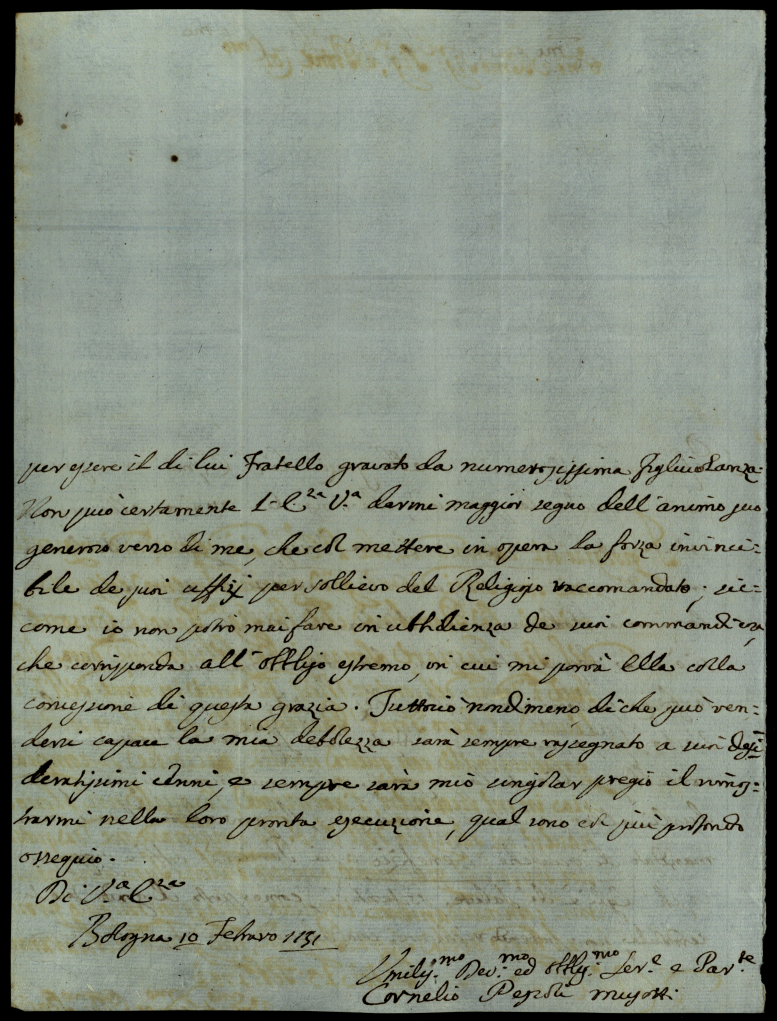 per essere il di lui Fratello gravato da numerosissima figliuolanza.
Non può certamente L' E.za V.a darmi maggior segno dell'animo suo
generoso verso di me, che col mettere in opera la forza invinci=
bile de suoi uffizj per sollievo del Religioso raccomandato; sic=
come io non potrò mai fare in ubbidienza de suoi commandi cosa,
che corrisponda all'obbligo estremo, in cui mi porrà Ella colla
concessione di questa grazia. Tuttociò nondimeno, di che può ren=
dersi capace la mia debolezza sarà sempre rassegnato a suoi desi=
deratissimi cenni, e sempre sarà mio singolar pregio il mos=
trarmi nella loro pronta esecuzione, qual sono col più profondo
ossequio.
Di V.ra E.za
Bologna 10 Febraro 1751
Umiliss.mo Dev.mo ed Obblig.mo Ser.e e Par.te
Cornelio Pepoli Musotti